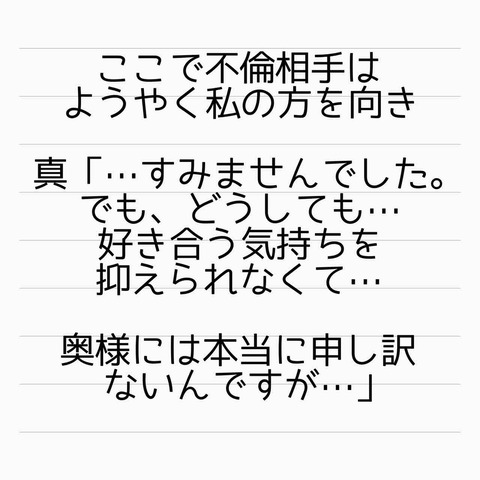 ここで不倫相手は
ようやく私の方を向き
真「…すみませんでした。
でも、どうしても…
好き合う気持ちを
抑えられなくて…
奥様には本当に申し訳
ないんですが…」